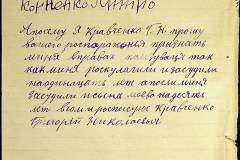 Корненко Дмитро
Апохму я Кравченко Г. Н. прошу
вашего роспаражения признать
меня в правах
так
как меня роскулачили и засудили
на одинацать лет апосля меня
засудили и сына мево на десять
лет в чом и росписуюс Кравченко
Григорій Николаевич